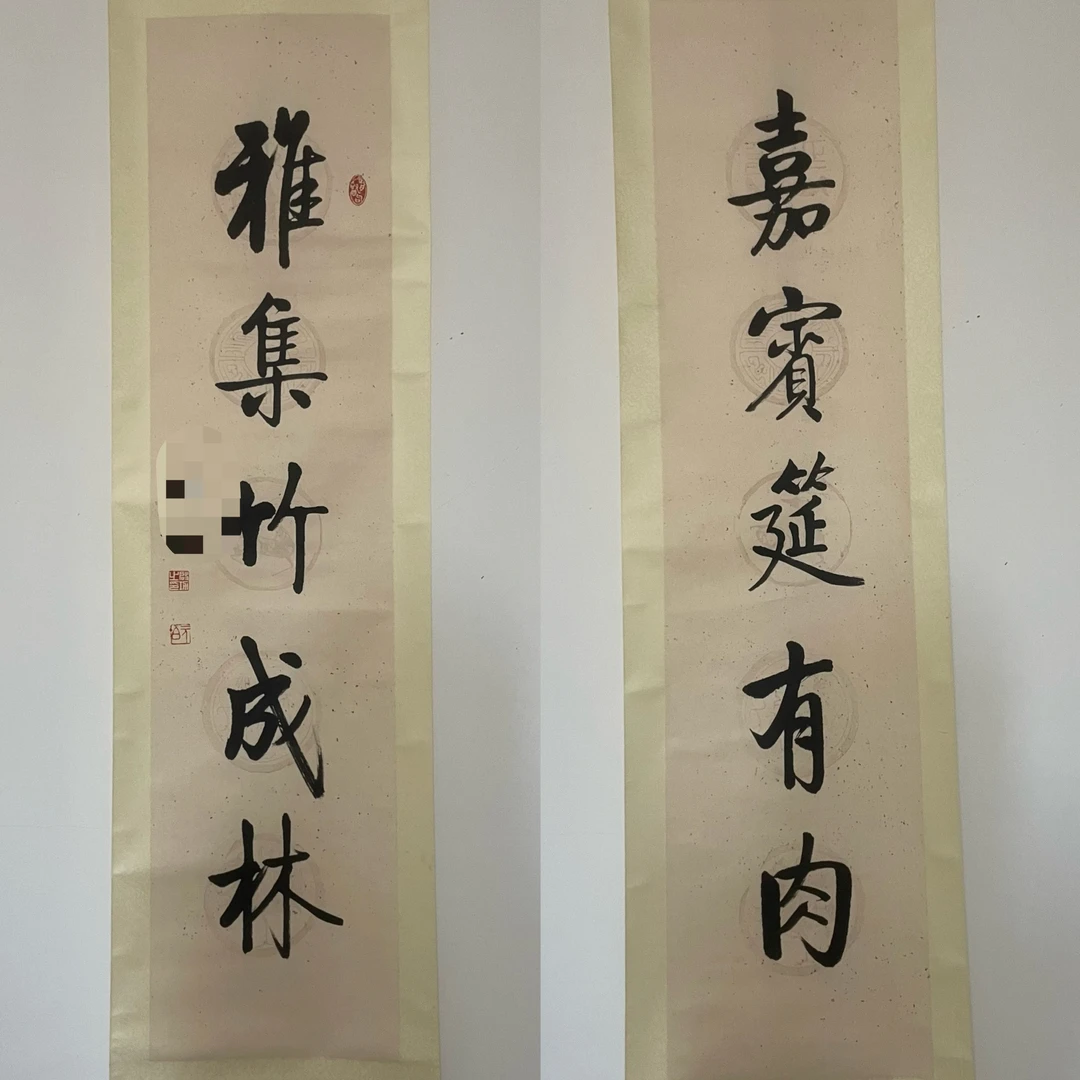 嘉賓筵有肉
雅集竹成林